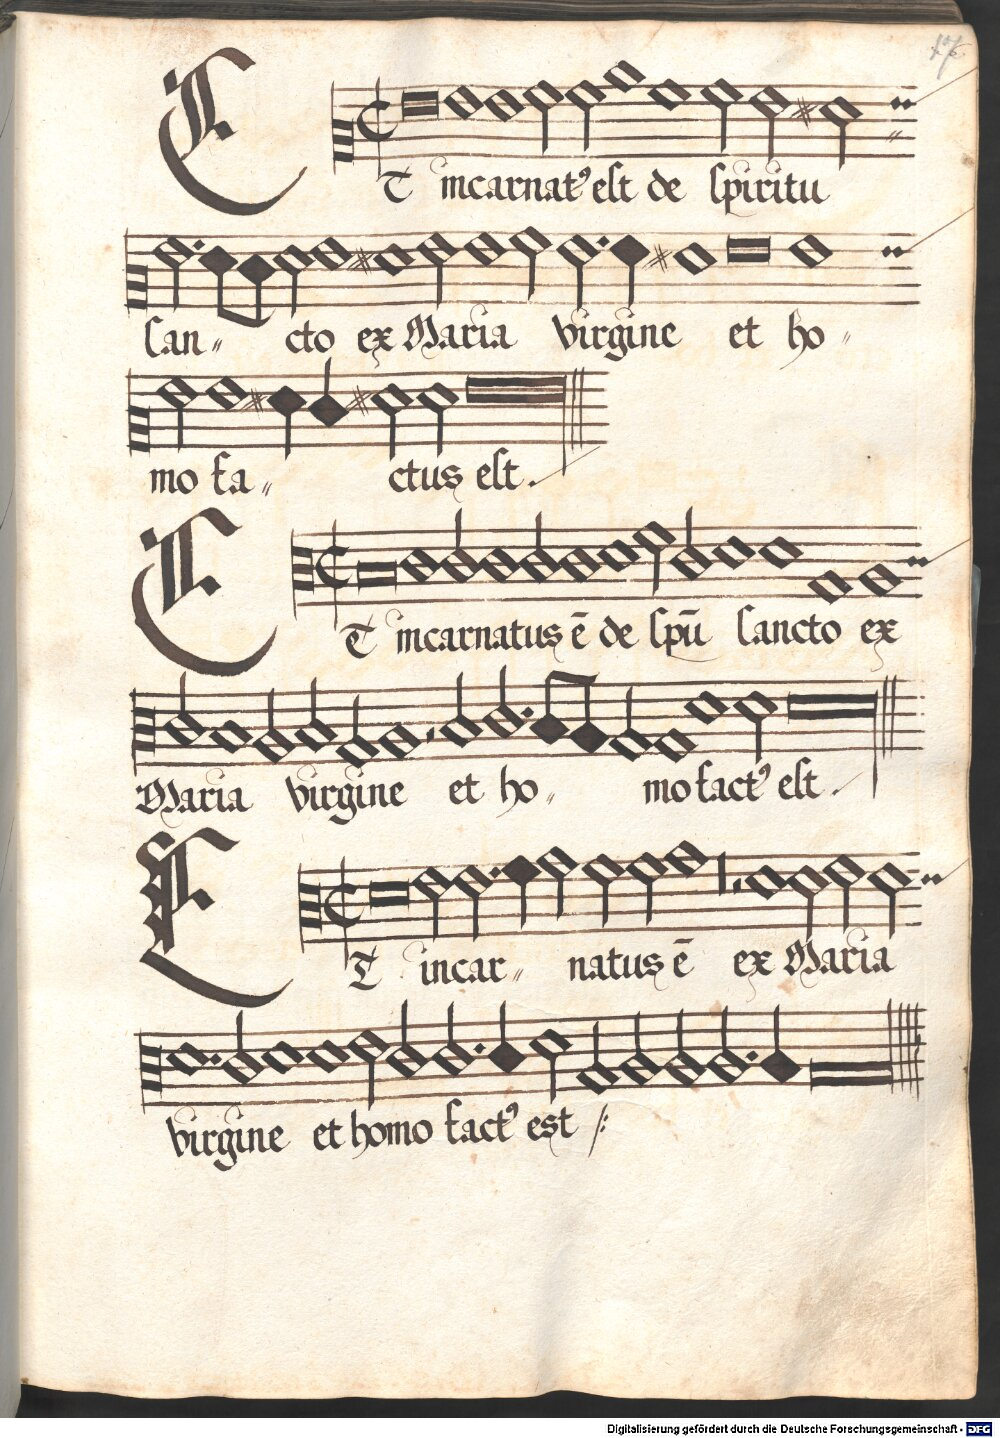 17
ET incarnatꝰ est de spiritu
san〃 cto ex Maria virgine et ho〃
mo fa〃 ctus est.
ET incarnatus ē de spū sancto ex
Maria virgine et ho〃 mo factꝰ est.
ET incar〃 natus ē ex Maria
virgine et homo factꝰ est
Digitalisierung gefördert durch die Deutsche Forschungsgemeinschaft - DFG